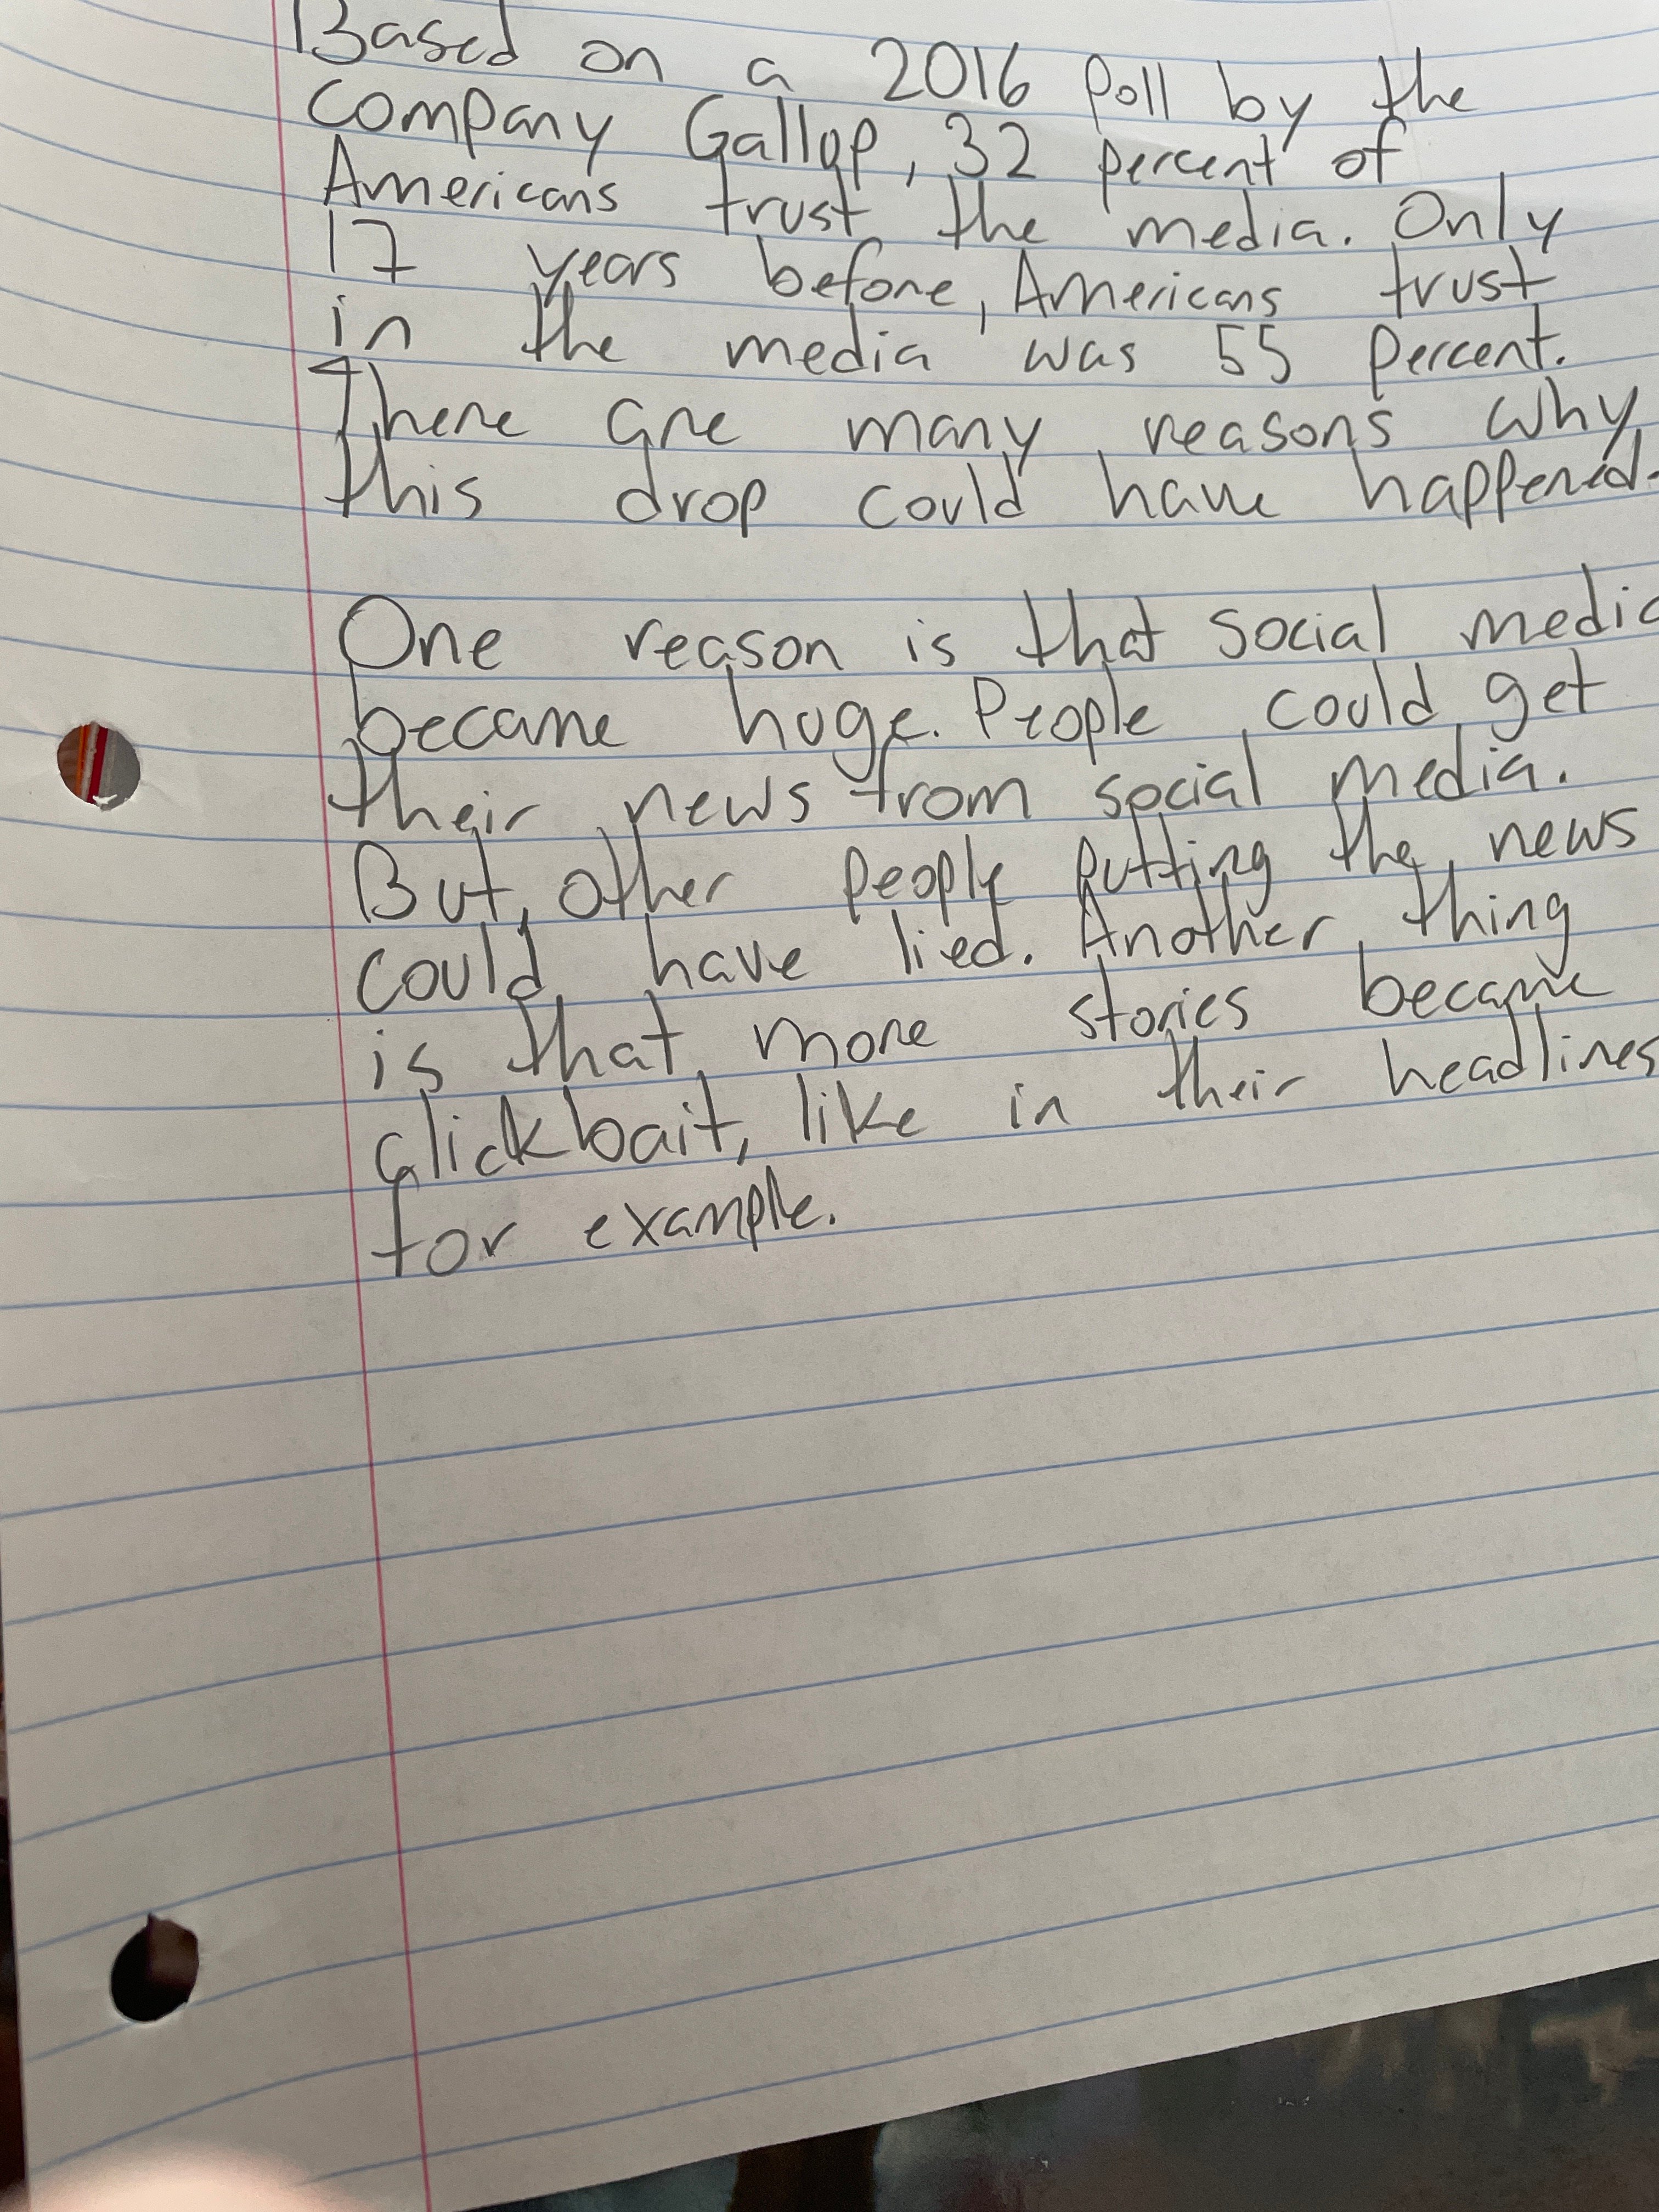 Based on a 2016 poll by the
company Gallop, 32 percent of
Americans trust the media. Only
17 years before, Americans trust
in the media was 55 percent.
There are many reasons why
this drop could have happened.
One reason is that social media
became huge. People could get
their news from social media.
But, other people putting the news
could have lied. Another thing
is that more stories became
clickbait, like in their headlines
for example.